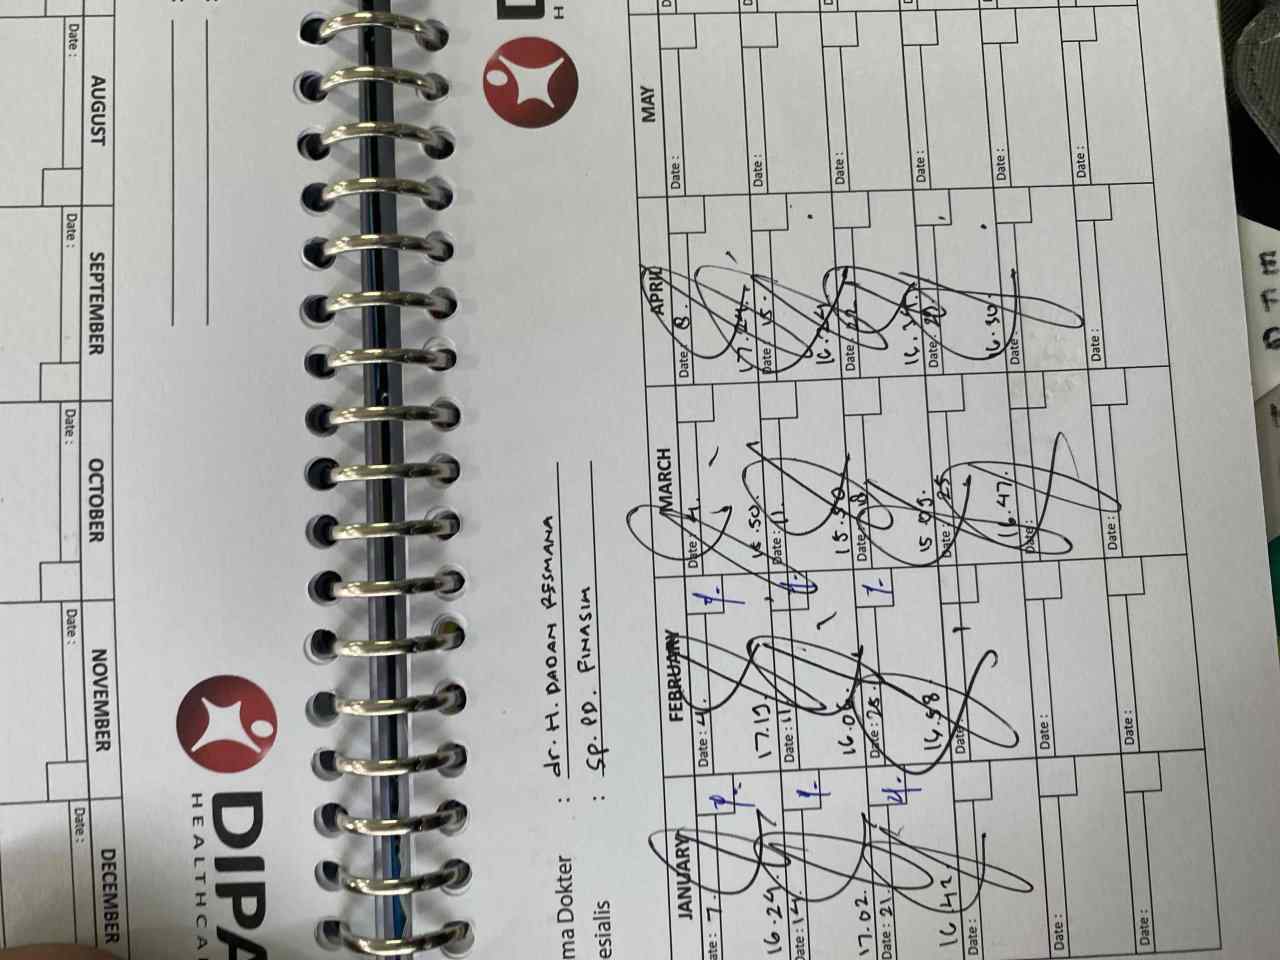 ma Dokter : dr. H. DADAN RESMANA
esialis : Sp. PD. FINASIM
JANUARY FEBRUARY MARCH APRIL MAY
ate: 7. Date: 4. Date: 4. Date: 8. Date:
16.24. 17.19. 17.24.
Date: 14. Date: 11. Date: 11. Date: 15. Date:
17.02. 16.06. 15.50 16.24
Date: 21. Date: 25. Date: 18. Date: 22. Date:
16.42 16.58. 15.05.
Date: Date: Date: 25 Date: Date:
16.47. 16.30.
Date: Date: Date: Date: Date:
Date: Date: Date: Date:
DIPA
HEALTHCA
AUGUST SEPTEMBER OCTOBER NOVEMBER DECEMBER
Date: Date: Date: Date: Date: